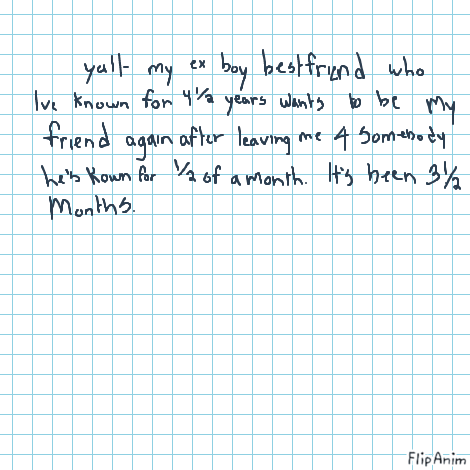 yall- my ex boy bestfriend who
Ive known for 4 1/2 years wants to be my
friend again after leaving me 4 somebody
he's kown for 1/2 of a month. It's been 3 1/2
Months.
FlipAnim